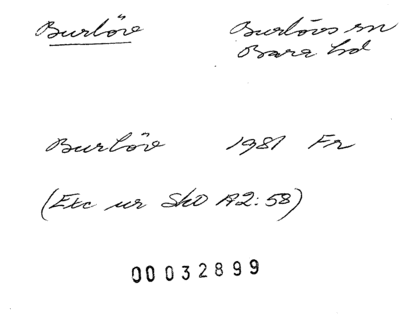 Burlöv Burlövs sn
Bara hd
Burlöv 1981 Fr
(Exc ur SkO A2:58)
00032899